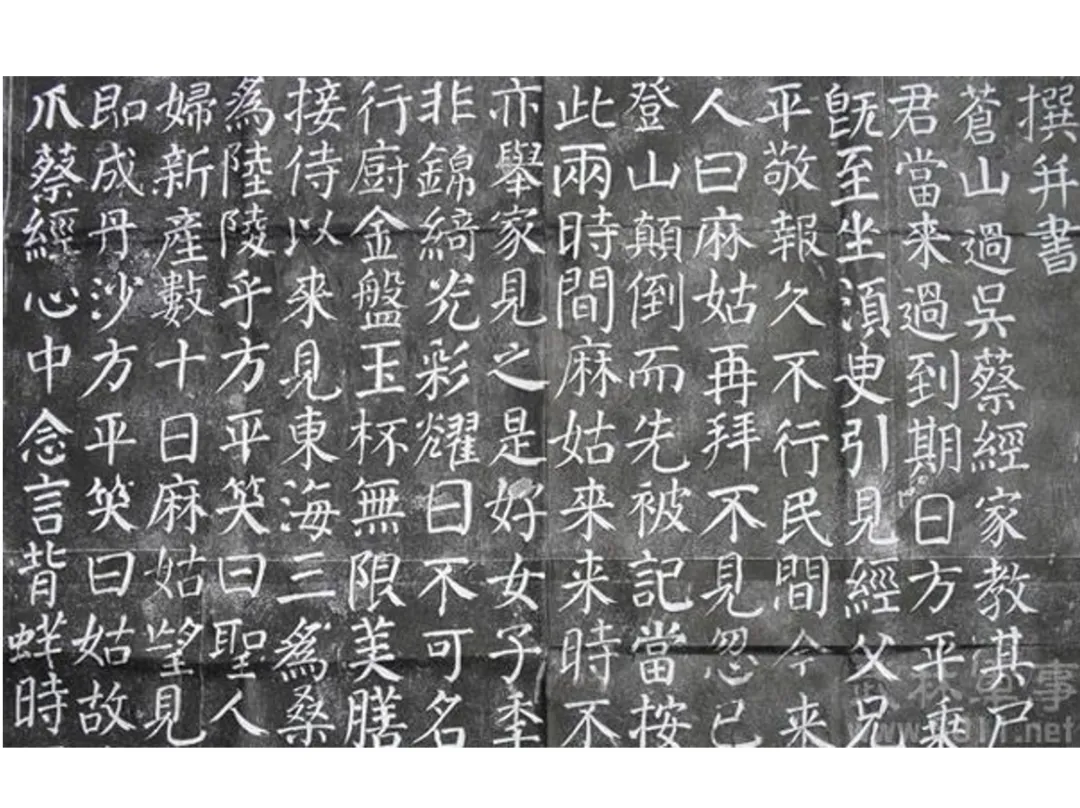 撰并書
蒼山過吳蔡經家教其尸
君當来過到期日方平乗
既至坐須臾引見經父兄
平敬報久不行民間今来
人曰麻姑再拜不見忽已
登山顛倒而先被記當按
此兩時間麻姑來来時不
亦舉家見之是好女子季
非錦綺光彩耀日不可名
行廚金盤玉杯無限美膳
接侍以來見東海三爲桒
爲陸陵乎方平笑曰聖人
婦新產數十日麻姑望見
即成丹沙方平笑曰姑故
爪蔡經心中念言背蛘時